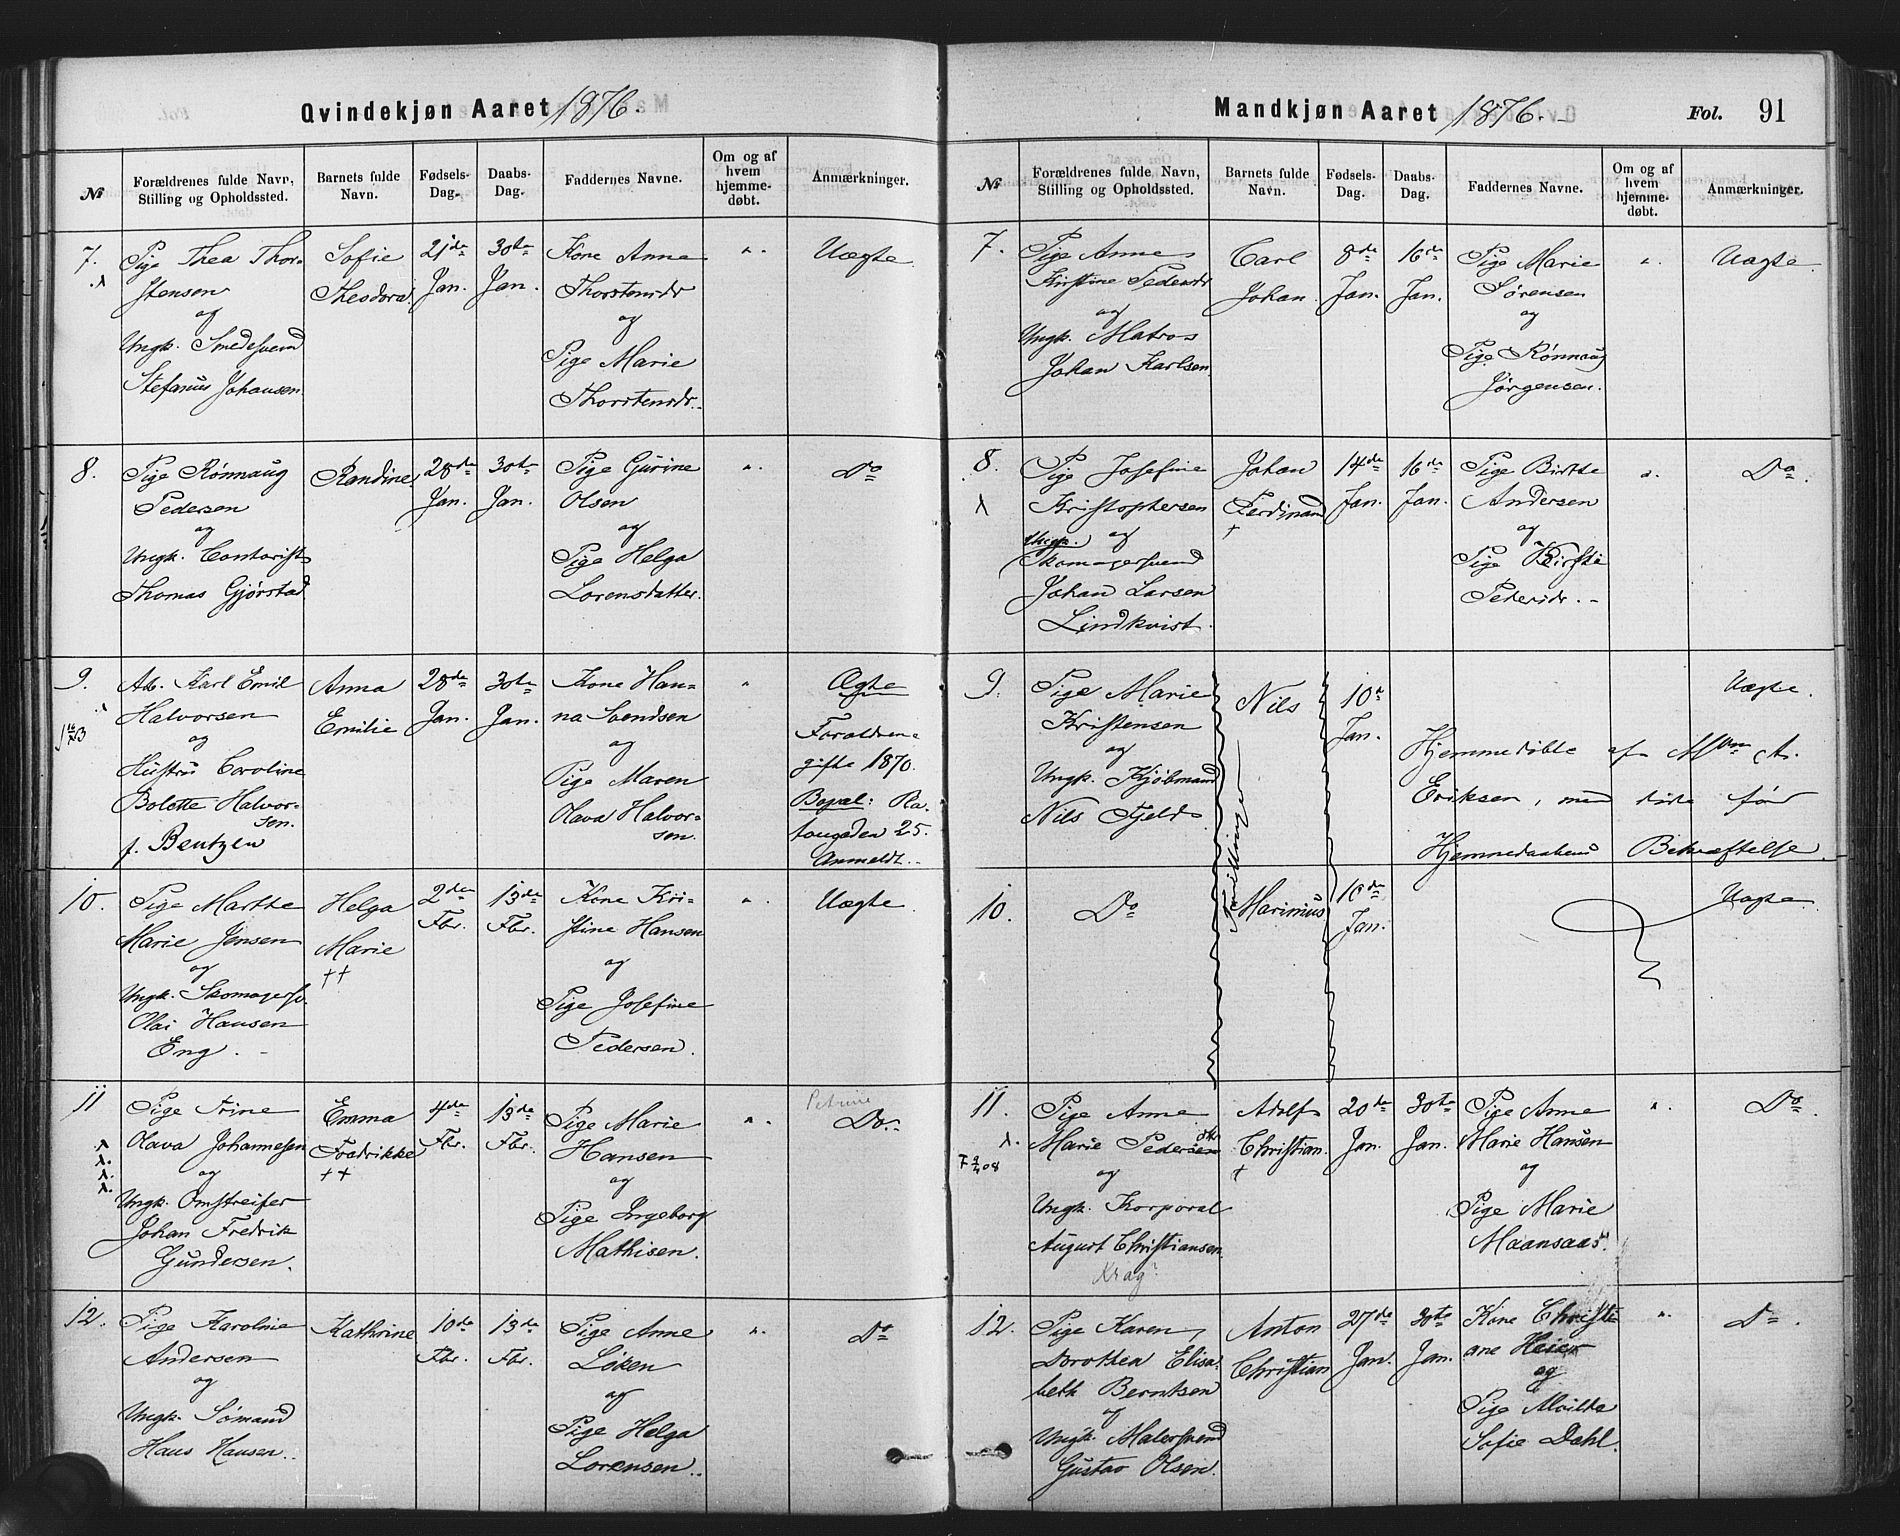 Qvindekjøn Aaret 1876.
№
Forældrenes fulde Navn, Stilling og Opholdssted.
Barnets fulde Navn.
Fødsels-Dag.
Daabs-Dag.
Faddernes Navne.
Om og af hvem hjemme-døbt.
Anmærkninger.
7.
Pige Thea Thor-
stensen
og
Ungk. Smedesvend
Stefanus Johansen.
Sofie
Theodora.
21de
Jan.
30te
Jan.
Kone Anna
Thorstensdr
og
Pige Marie
Thorstensdr.
"
Uægte.
8.
Pige Rønnaug
Pedersen
og
Ungk. Contorist
Thomas Gjørstad.
Randine.
28de
Jan.
30te
Jan.
Pige Gurine
Olsen
og
Pige Helga
Lorensdatter.
"
Do
9.
Arb. Karl Emil
Halvorsen
og
Hustru Caroline
Bolette Halvor-
sen.
f. Bentzen
Anna
Emilie
28de
Jan.
30te
Jan.
Kone Han-
na Svendsen
og
Pige Maren
Olava Halvor-
sen.
"
Ægte
Forældrene
gifte 1870.
Bopæl: Ra-
tougaden 25.
Anmeldt.
10.
Pige Marthe
Marie Jensen
og
Ungk. Skomagersv.
Olai Hansen
Eng.
Helga
Marie
++
2den
Fbr.
13de
Fbr.
Kone Kri-
stine Hansen
og
Pige Josefine
Pedersen.
"
Uægte.
11
Pige Trine
Olava Johannesen
og
Ungk. Omstreifer
Johan Fredrik
Gundersen.
Emma
Fredrikke
++
4de
Fbr.
13de
Fbr.
Pige Marie
Hansen
og
Pige Ingeborg
Mathisen.
"
Petrine
Do.
12.
Pige Karoline
Andersen
og
Ungk. Sømand
Hans Hansen.
Kathrine
10de
Fbr.
13de
Fbr.
Pige Anne
Løken
og
Pige Helga
Lorensen.
"
Do
Mandkjøn Aaret 1876.
Fol. 91
№
Forældrenes fulde Navn, Stilling og Opholdssted.
Barnets fulde Navn.
Fødsels-Dag.
Daabs-Dag.
Faddernes Navne.
Om og af hvem hjemme-døbt.
Anmærkninger.
7.
Pige Anne
Kristine Pedersdr
og
Ungk. Matros
Johan Karlsen.
Carl
Johan.
8de
Jan.
16de
Jan.
Pige Marie
Sørensen
og
Pige Rønnaug
Jørgensen.
"
Uægte.
8.
Pige Josefine
Kristophersen
og
Ungk.
Skomagersvend
Johan Larsen
Lindkvist.
Johan
Ferdinand
+
14de
Jan.
16de
Jan.
Pige Birthe
Andersen
og
Pige Kirsti
Pedersdr.
"
Do
9.
Pige Marie
Kristensen
og
Ungk. Kjøbmand
Nils Fjeld
Nils
Tvillinger
10de
Jan.
Uægte.
Hjemmedøbte af A.
Eriksen, men døde før
Hjemmedaabens Bekræftelse.
10.
Do
Marinius
10de
Jan.
Uægte.
11.
Pige Anne
Marie Pedersen
og
Ungk. Korporal
August Christiansen.
Krag?
Adolf
Christian.
+
20de
Jan.
30te
Jan.
Pige Anne
Marie Hansen
og
Pige Marie
Maansaas.
"
Do.
12.
Pige Karen,
Dorothea Elisa-
beth Berntsen
og
Ungk. Malersvend
Gustav Olsen.
Anton
Christian
27de
Jan.
30te
Jan.
Kone Christi-
ane Heier
og
Pige Alvilde
Sofie Dahl.
"
Do.